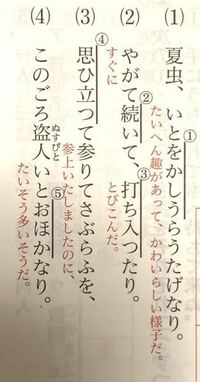 (1) 夏虫、いとをかしうらうたげなり。
①
たいへん趣があって、かわいらしい様子だ。
(2) やがて続いて、打ち入つたり。
② ③
すぐに とびこんだ。
(3) 思ひ立つて参りてさぶらふを、
④
参上いたしましたのに、
(4) このごろ盗人いとおほかなり。
ぬすびと
⑤
たいそう多いそうだ。